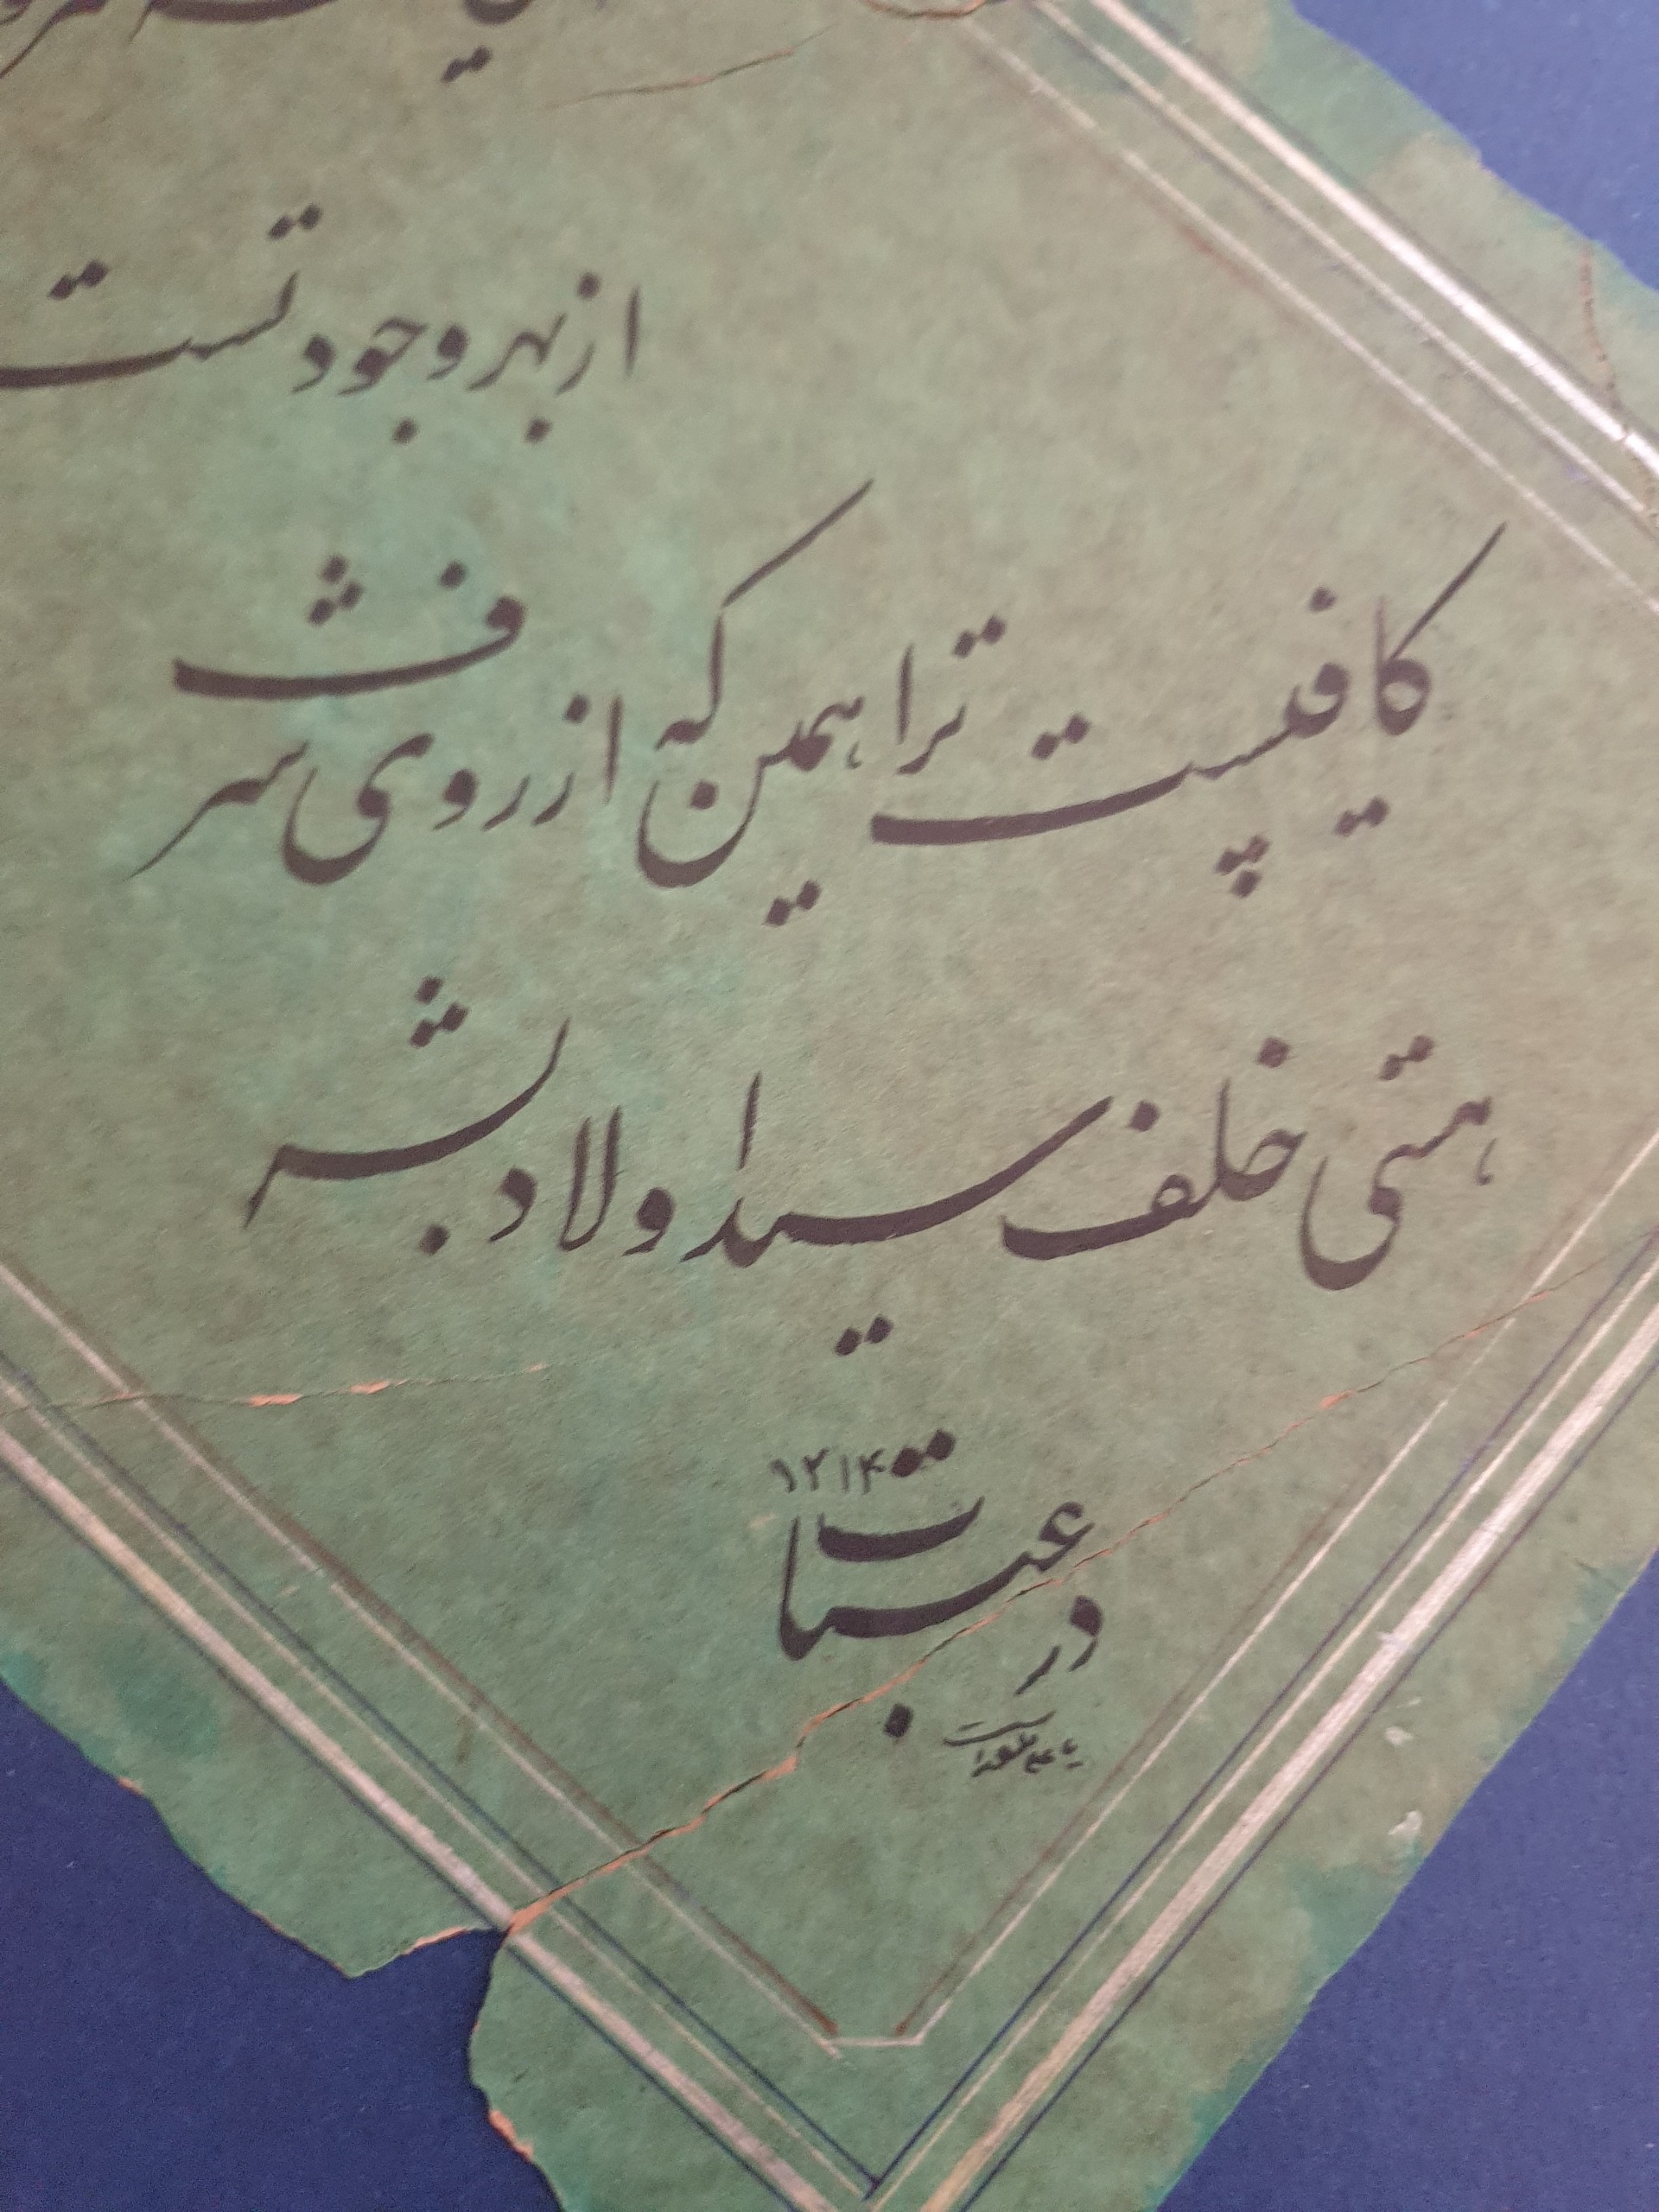 از بهر وجود تست
کافیست ترا همین که از روی شرف
هستی خلف سید اولاد بشر
۱۲۱۴
در عتبات